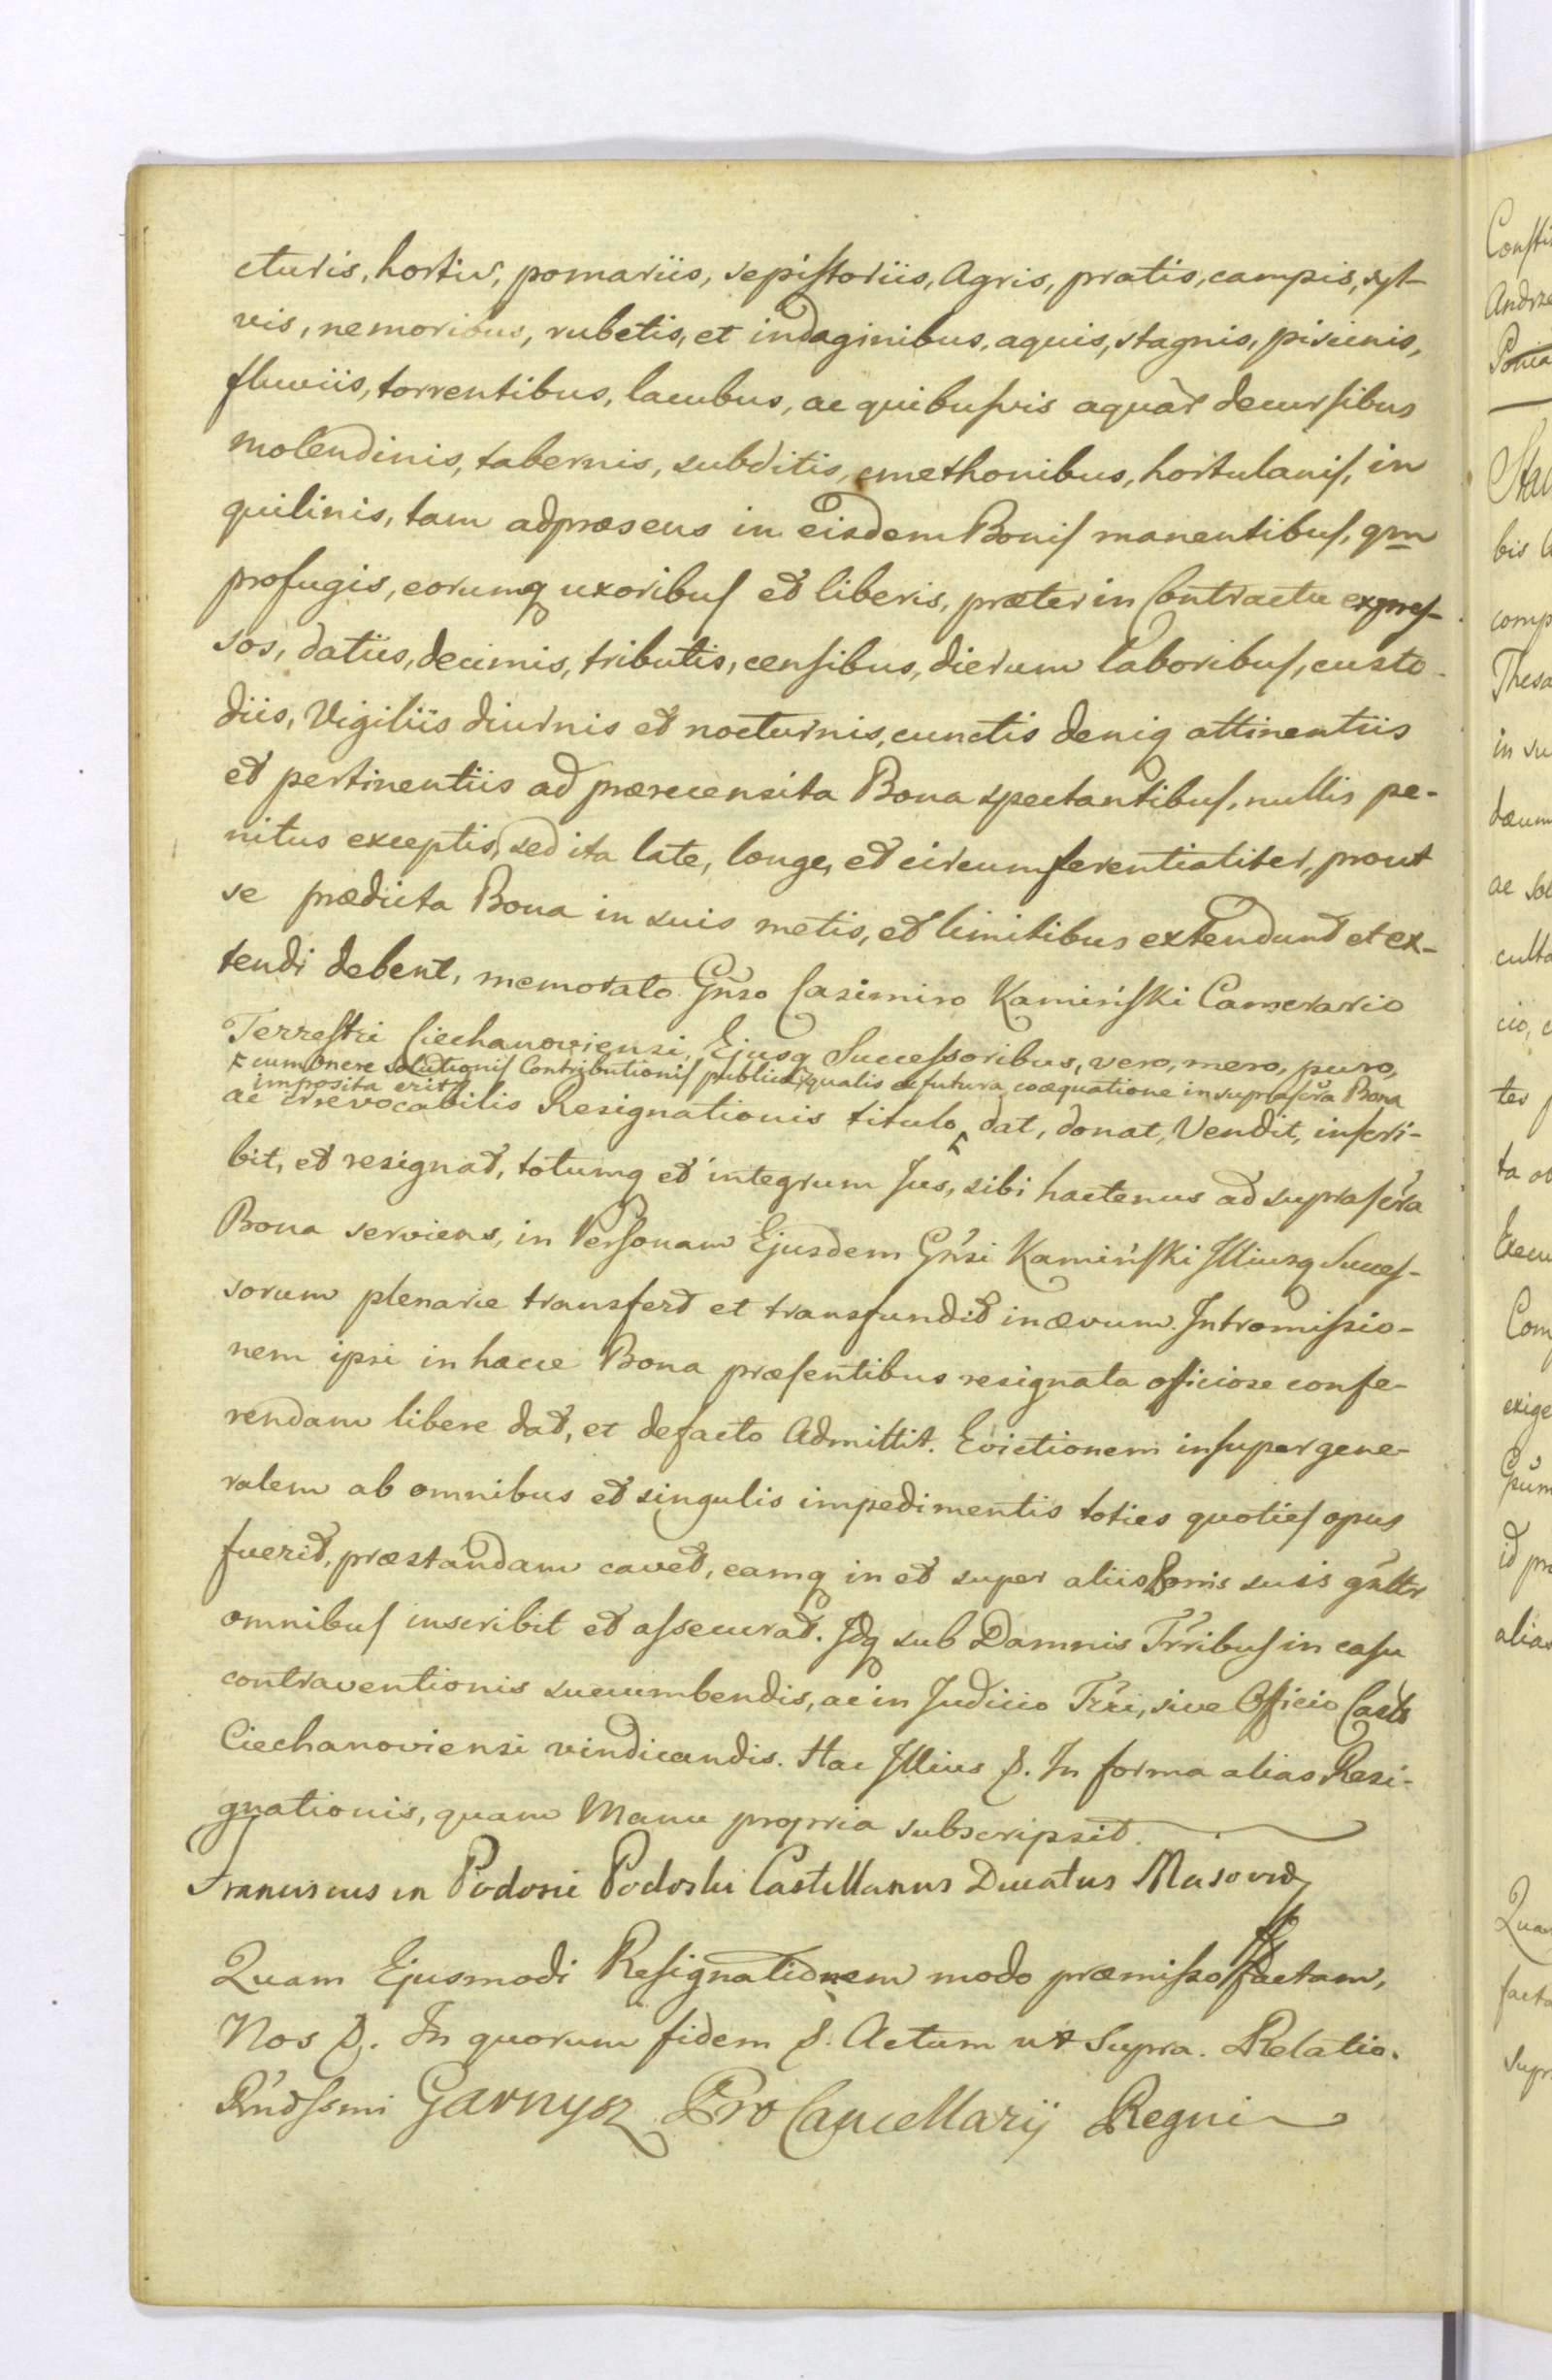 cturis, hortis, pomariis, sepistoriis, Agris, pratis, campis, syl-
vis, nemoribus, rubetis, et indaginibus, aquis, stagnis, piscinis,
fluviis, torrentibus, lacubus, ac quibusvis aquar̃ decursibus
molendinis, tabernis, subditis, cmethonibus, hortulanis, in
quilinis, tam adpræsens in eisdem Bonis manentibus, qm
profugis, eorumq uxoribus et liberis, præter in Contractu expres-
sos, datiis, decimis, tributis, censibus, dierum laboribus, custo-
diis, Vigiliis diurnis et nocturnis, cunctis deniq attinentiis
et pertinentiis ad præcensita Bona spectantibus, nullis pe-
nitus exceptis, sed ita late, longe, et circumferentialiter, prout
se prædicta Bona in suis metis, et limitibus extendunt et ex-
tendi debent, memorato Gñso Casimiro Kamiński Camerario
Terrestri Ciechanoviensi, Ejusq Successoribus, vero, mero, puro,
cum onere solutionis Contributionis publicæ, qualis ex futura coæquatione in suprascr̃a Bona
imposita erit
ac irrevocabilis Resignationis titulo dat, donat, Vendit, inscri-
bit, et resignat, totumq et integrum Jus, sibi hactenus ad suprascr̃a
Bona serviens, in Personam Ejusdem Gñsi Kamiński Illiusq Succes-
sorum plenarie transfert et transfundit in ævum. Intromissio-
nem ipsi in hæcce Bona præsentibus resignata officiose confe-
rendam libere dat, et defacto Admittit. Evictionem insuper gene-
ralem ab omnibus et singulis impedimentis toties quoties opus
fuerit, præstandam cavet, eamq in et super aliis Bonis suis gñltr
omnibus inscribit et assecurat. Idq sub Damnis Tr̃ribus in casu
contraventionis succumbendis, ac in Judicio Tr̃ri, sive Officio Castr
Ciechanoviensi vindicandis. Hac Illius &. In forma alias Resi-
gnationis, quam Manu propria subscripsit.
Franciscus in Podosie Podoski Castellanus Ducatus Masoviæ
Quam Ejusmodi Resignationem modo præmisso factam,
Nos &. In quorum fidem &. Actum ut Supra. Relatio.
Rñdssmi Garnysz Pro Cancellarij Regni